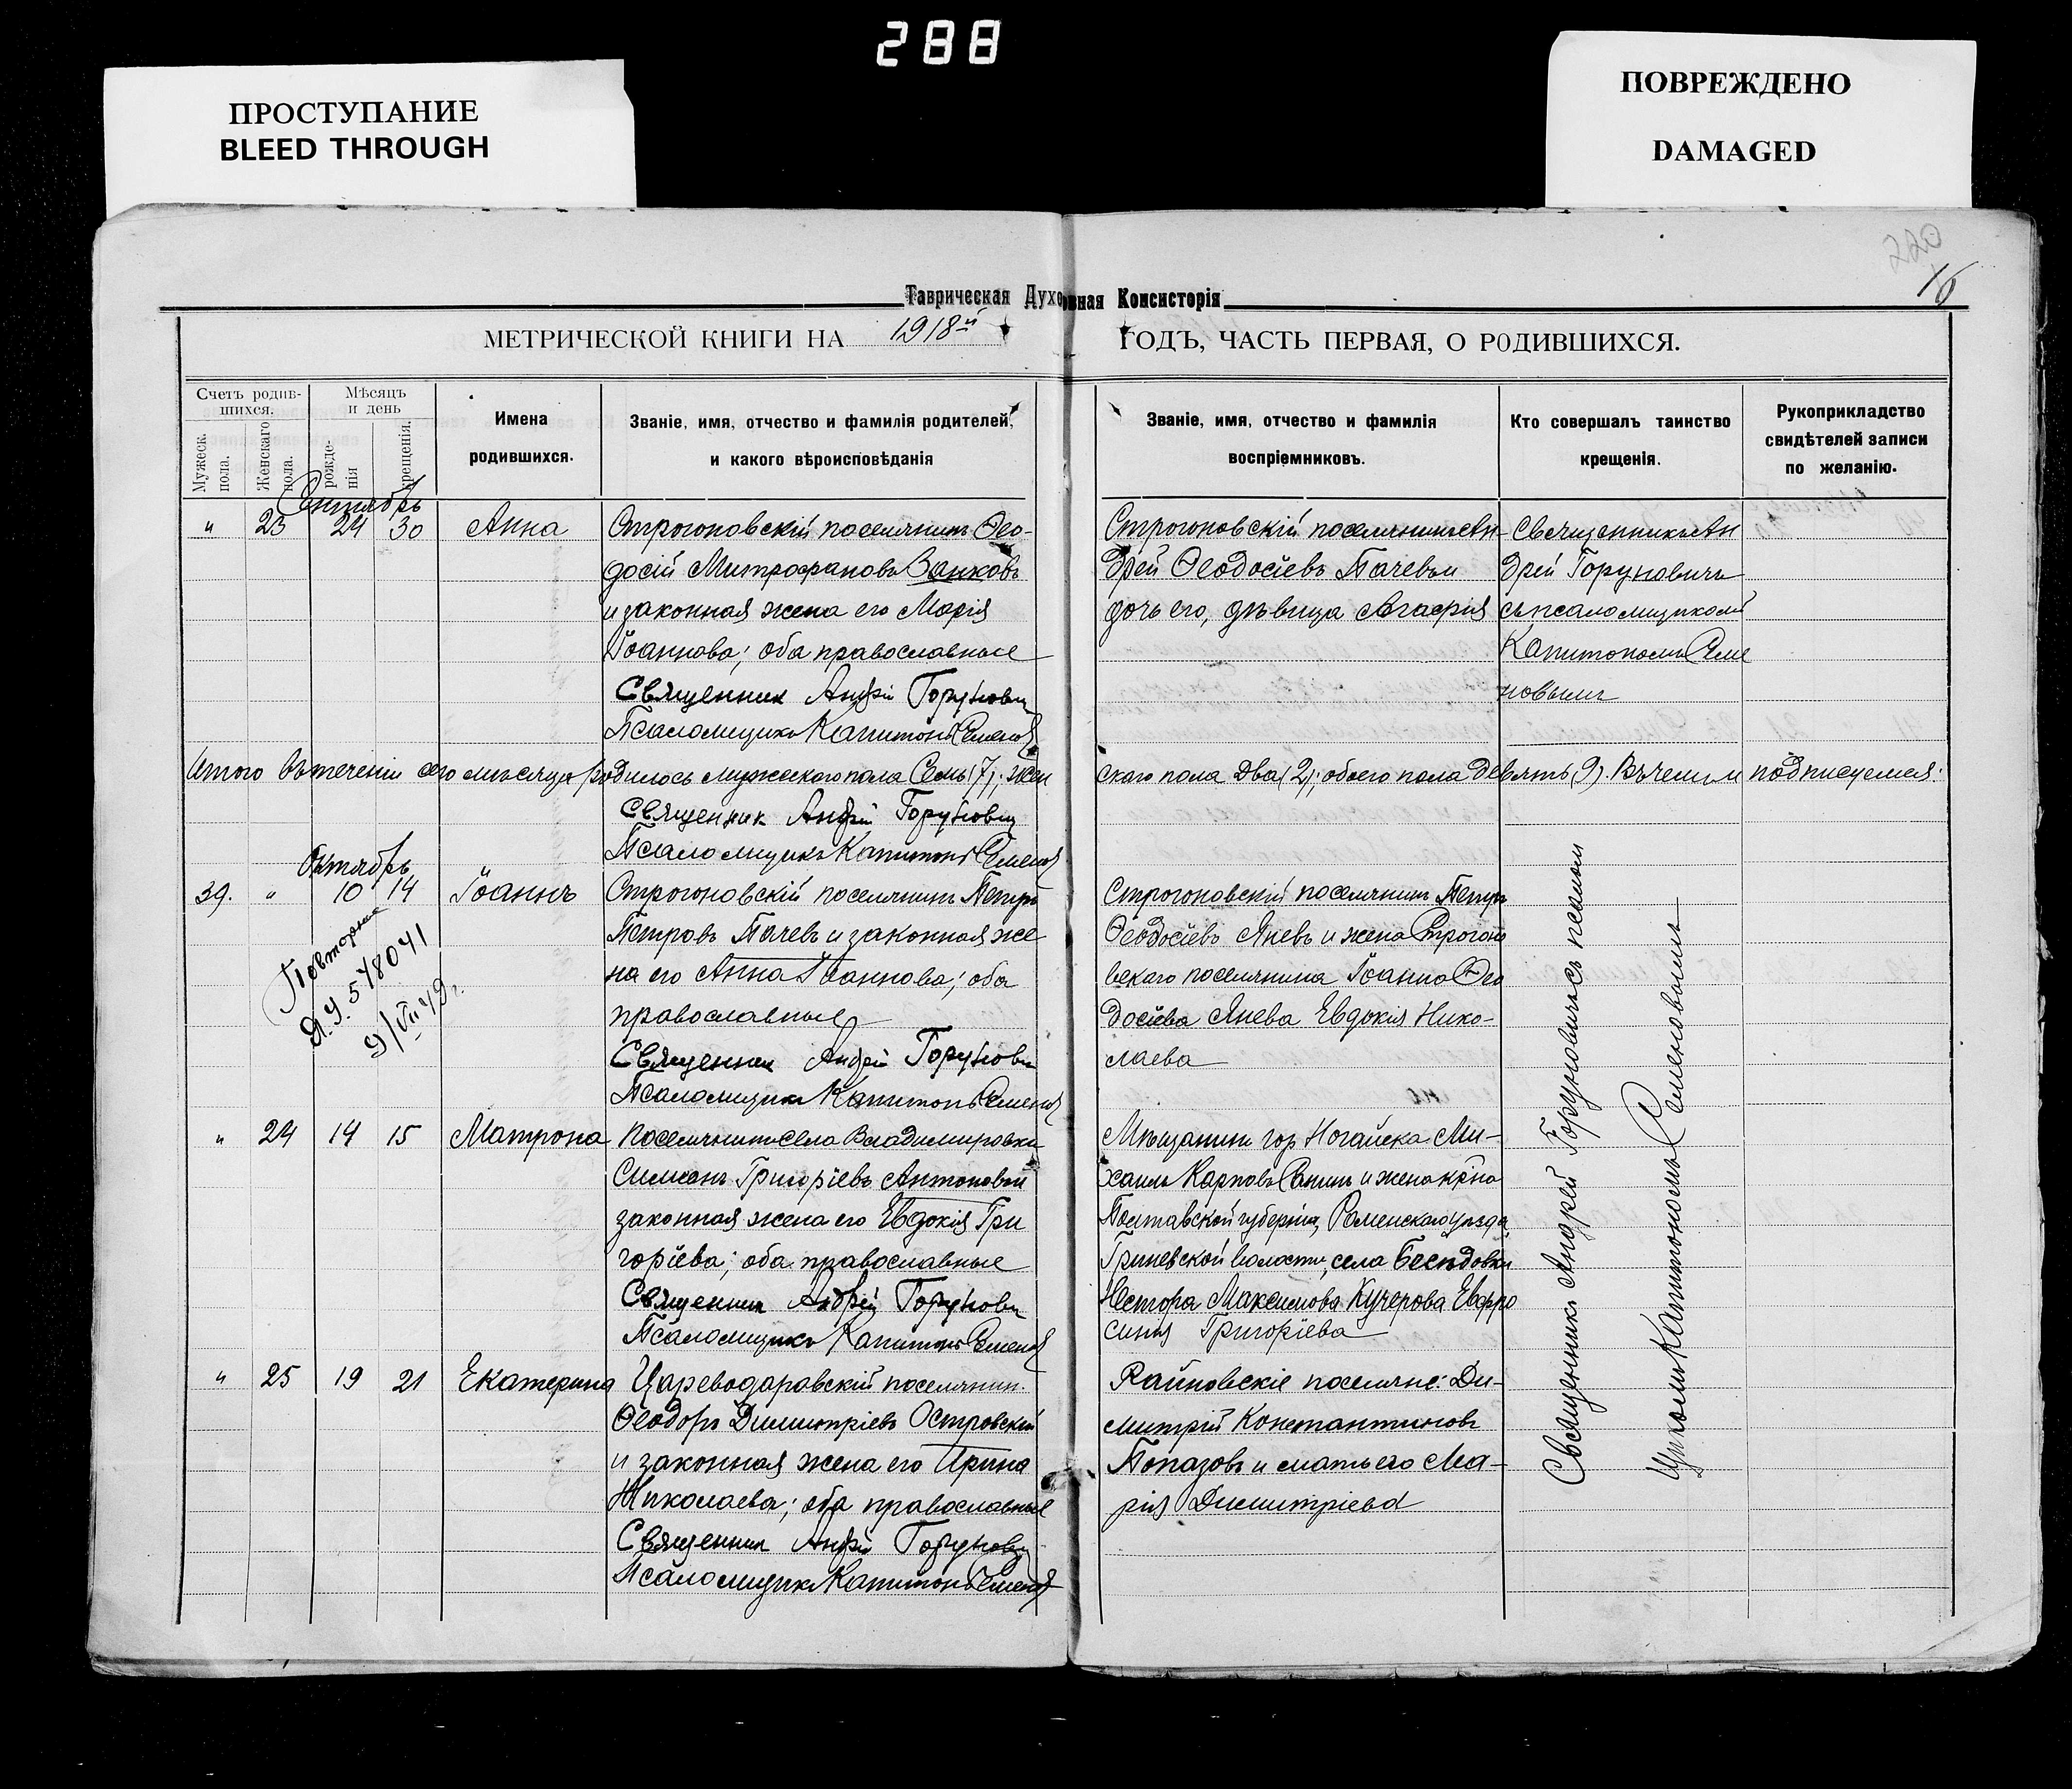 288
ПРОСТУПАНИЕ
BLEED THROUGH
ПОВРЕЖДЕНО
DAMAGED
220
16
Таврическая Духовная Консисторія
МЕТРИЧЕСКОЙ КНИГИ НА 1918й ГОДЪ, ЧАСТЬ ПЕРВАЯ, О РОДИВШИХСЯ.
Счетъ родив-
шихся.
Мужеск.
пола.
Женскаго
пола.
Мѣсяцъ
и день
рожде-
нія
крещенія.
Имена
родившихся.
Званіе, имя, отчество и фамилія родителей,
и какого вѣроисповѣданія
Званіе, имя, отчество и фамилія
воспріемниковъ.
Кто совершалъ таинство
крещенія.
Рукоприкладство
свидѣтелей записи
по желанію.
Сентябрь
" 23 24 30 Анна
Строгоновскій поселянинъ Ѳео-
досій Митрофановъ Занковъ
и законная жена его Марія
Іоаннова; оба православные
Священник Андрій Горунович
Псаломщикъ Капитонъ Семенов
Строгоновскій поселянинъ Ан-
дрей Ѳеодосіевъ Тачевъ и
дочь его, дѣвица Агафія
Священникъ Ан
дрей Горуновичъ
съ псаломщикомъ
Капитономъ Семе
новымъ
Итого въ теченіи сего мѣсяца родилось мужескаго пола Семь (7); жен
скаго пола Два (2); обоего пола девять (9). Въ чемъ и подписуемся:
Священник Андрій Горунович
Псаломщикъ Капитонъ Семенов
Октябрь
39. " 10 14 Іоаннъ
Повторное
ЯУ 548041
9/VII 49г.
Строгоновскій поселянинъ Петръ
Петровъ Тачевъ и законная же
на его Анна Іоаннова; оба
православные
Священник Андрій Горунович
Псаломщикъ Капитонъ Семенов
Строгоновскій поселянинъ Петръ
Ѳеодосіевъ Яневъ и жена Строгоно
вскаго поселянина Іоанна Ѳео
досіева Янева Евдокія Нико-
лаева
" 24 14 15 Матрона
Поселянинъ села Владимировки
Симеонъ Григоріевъ Антоновъ и
законная жена его Евдокія Гри
горіева; оба православные
Священник Андрій Горунович
Псаломщикъ Капитонъ Семенов
Мѣщанинъ гор Ногайска Ми-
хаилъ Карповъ Санинъ и жена кр-на
Полтавской губерніи, Роменскаго уѣзда,
Гриневской волости, села Бесѣдовки
Нестора Максимова Кучерова Евфро
синія Григоріева
" 25 19 21 Екатерина
Цареводаровскій поселянин.
Ѳеодоръ Димитріевъ Островскій
и законная жена его Ирина
Николаева; оба православные
Священник Андрій Горунович
Псаломщикъ Капитонъ Семенов
Райновскіе поселяне: Ди-
митрій Константиновъ
Попазовъ и мать его Ма-
рія Димитріева
Священникъ Андрей Горуновичъ съ псалом
щикомъ Капитономъ Семеновымъ